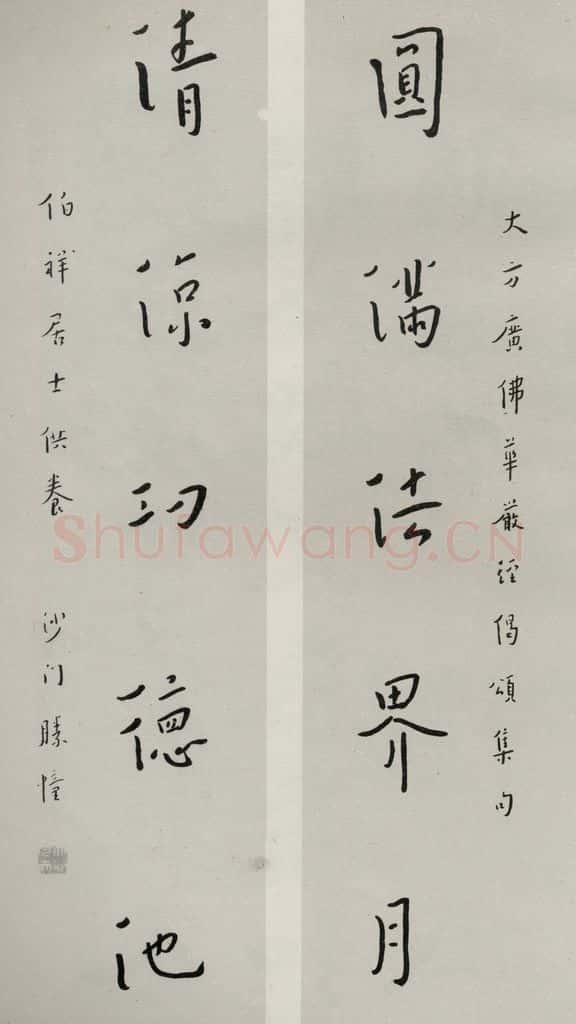 大方廣佛華嚴經偈頌集句
圓滿法界月
清涼功德池
伯祥居士供養 沙门勝幢
Shufawang.CN